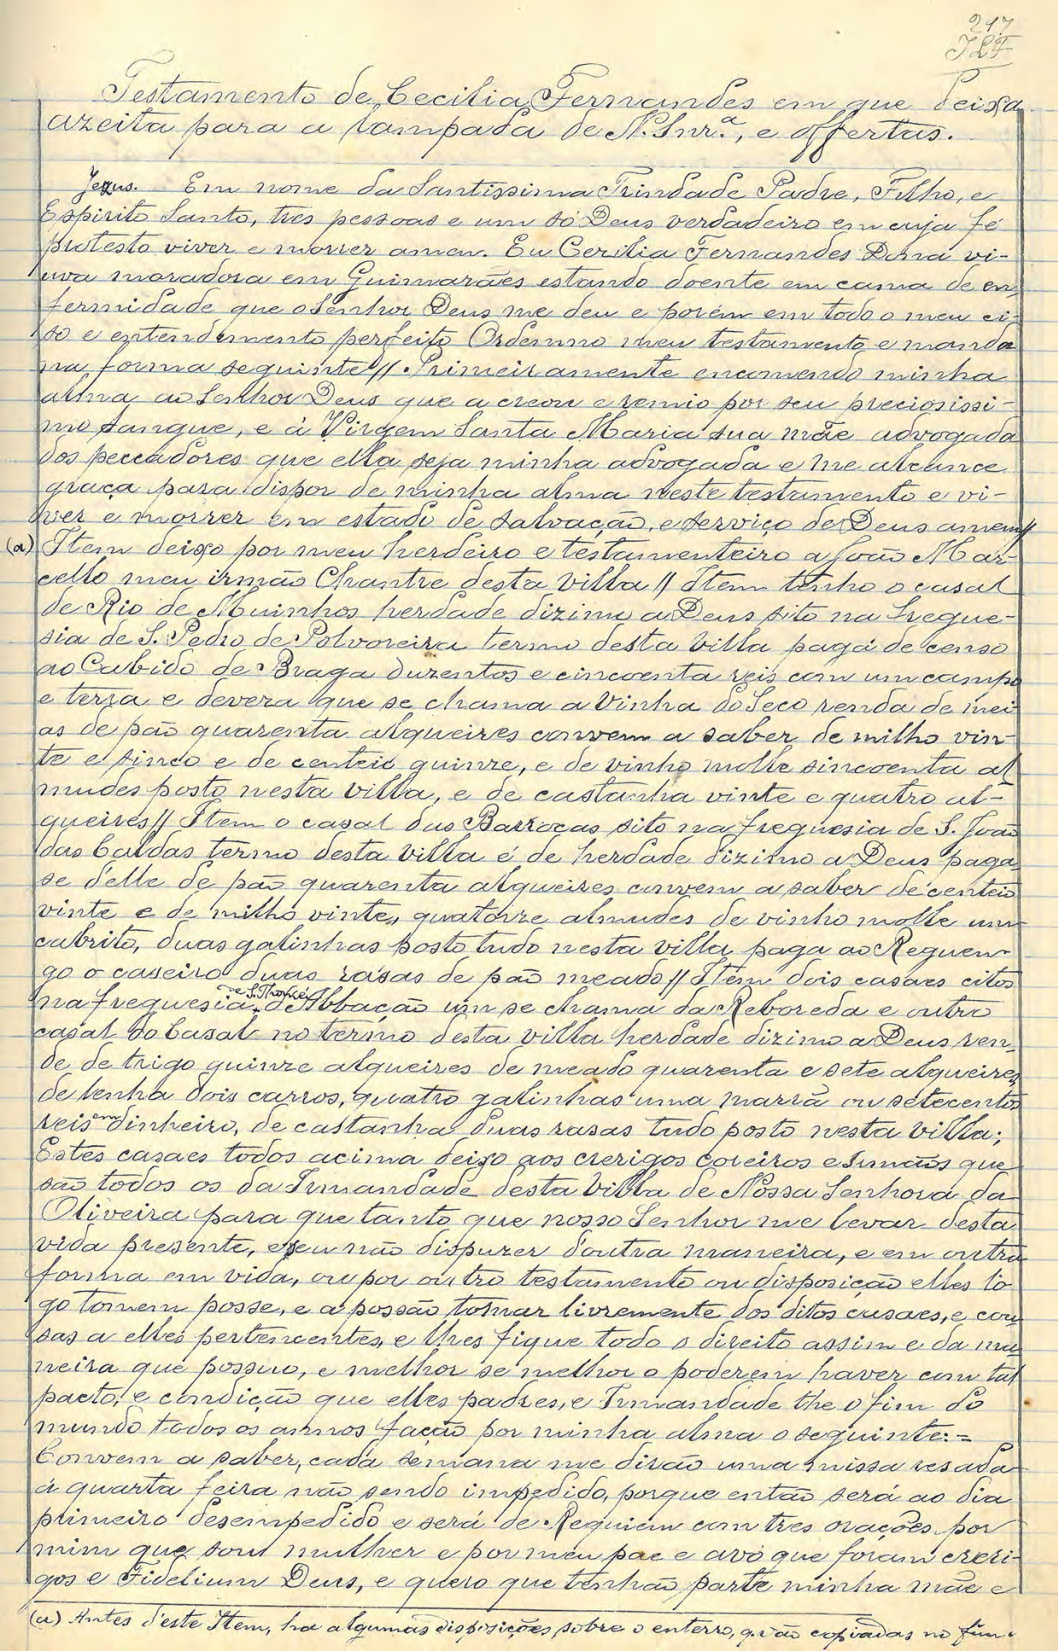 217
Testamento de Cecilia Fernandes em que deixa
azeita para a lampada de N. Snr.ª, e offertas.
Jezus. Em nome da Santissima Trindade Padre, Filho, e
Espirito Santo, tres pessoas e um só Deus verdadeiro em cuja fé
protesto viver e morrer amen. Eu Cecilia Fernandes Dona vi-
uva moradora em Guimarães estando doente em cama de en-
fermidade que o Senhor Deus me deu e porém em todo o meu ci-
so e entendimento perfeito Ordenno meu testamento e manda
na forma seguinte // Primeiramente encomendo minha
alma ao Senhor Deus que a creou e remio por seu preciosissi-
mo sangue, e á Virgem Santa Maria sua mãe advogada
dos peccadores que ella seja minha advogada e me alcance
graça para dispor de minha alma neste testamento e vi-
ver e morrer em estado de salvação, e serviço de Deus amen //
(a) Item deixo por meu herdeiro e testamenteiro a João Mar-
cello meu irmão Chantre desta Villa // Item tenho o casal
de Rio de Muinhos herdade dizimo a Deus sito na fregue-
sia de S. Pedro de Polvoreira termo desta Villa paga de censo
ao Cabido de Braga duzentos e cincoenta reis com um campo
e terra e deveza que se chama a Vinha do Seco renda de mei-
as de pão quarenta alqueires convem a saber de milho vin-
te e sinco e de centeio quinze, e de vinho molle sincoenta al
mudes posto nesta villa, e de castanha vinte e quatro al-
queires // Item o casal das Barrocas sito na freguesia de S. João
das Caldas termo desta Villa é de herdade dizimo a Deus paga
se d'elle de pão quarenta alqueires convem a saber de centeio
vinte e de milho vinte, quatorze almudes de vinho molle um
cabrito, duas galinhas posto tudo nesta villa paga ao Reguen-
go o caseiro duas rasas de pão meado // Item dois casaes citos
na freguesia de S. Thomé d'Abbação um se chama da Reboreda e outro
casal do Casal no termo desta villa herdade dizimo a Deus ren-
de de trigo quinze alqueires de meado quarenta e sete alqueires
de lenha dois carros, quatro galinhas uma marrã ou setecentos
reis em dinheiro, de castanha duas rasas tudo posto nesta villa;
Estes casaes todos acima deixo aos crerigos coreiros e Irmãos que
são todos os da Irmandade desta Villa de Nossa Senhora da
Oliveira para que tanto que nosso Senhor me levar desta
vida presente, e seu não dispuzer d'outra maneira, e em outra
forma em vida, ou por outro testamento ou disposição elles lo-
go tomem posse, e a possão tomar livremente dos ditos casaes, e cou
sas a elles pertencentes, e lhes fique todo o direito assim e da ma
neira que possuo, e melhor se melhor o poderem haver com tal
pacto, e condição que elles padres, e Irmandade the o fim do
mundo todos os annos fação por minha alma o seguinte:=
Convem a saber, cada semana me dirão uma missa resada
á quarta feira não sendo impedido, porque então será ao dia
primeiro desempedido e será de Requiem com tres orações por
mim que sou mulher e por meu pae e avó que foram creri-
gos e Fidelium Deus, e quero que tenhão parte minha mãe e
(a) Antes d'este Item, ha algumas disposições sobre o enterro, q. vão copiadas no fim.